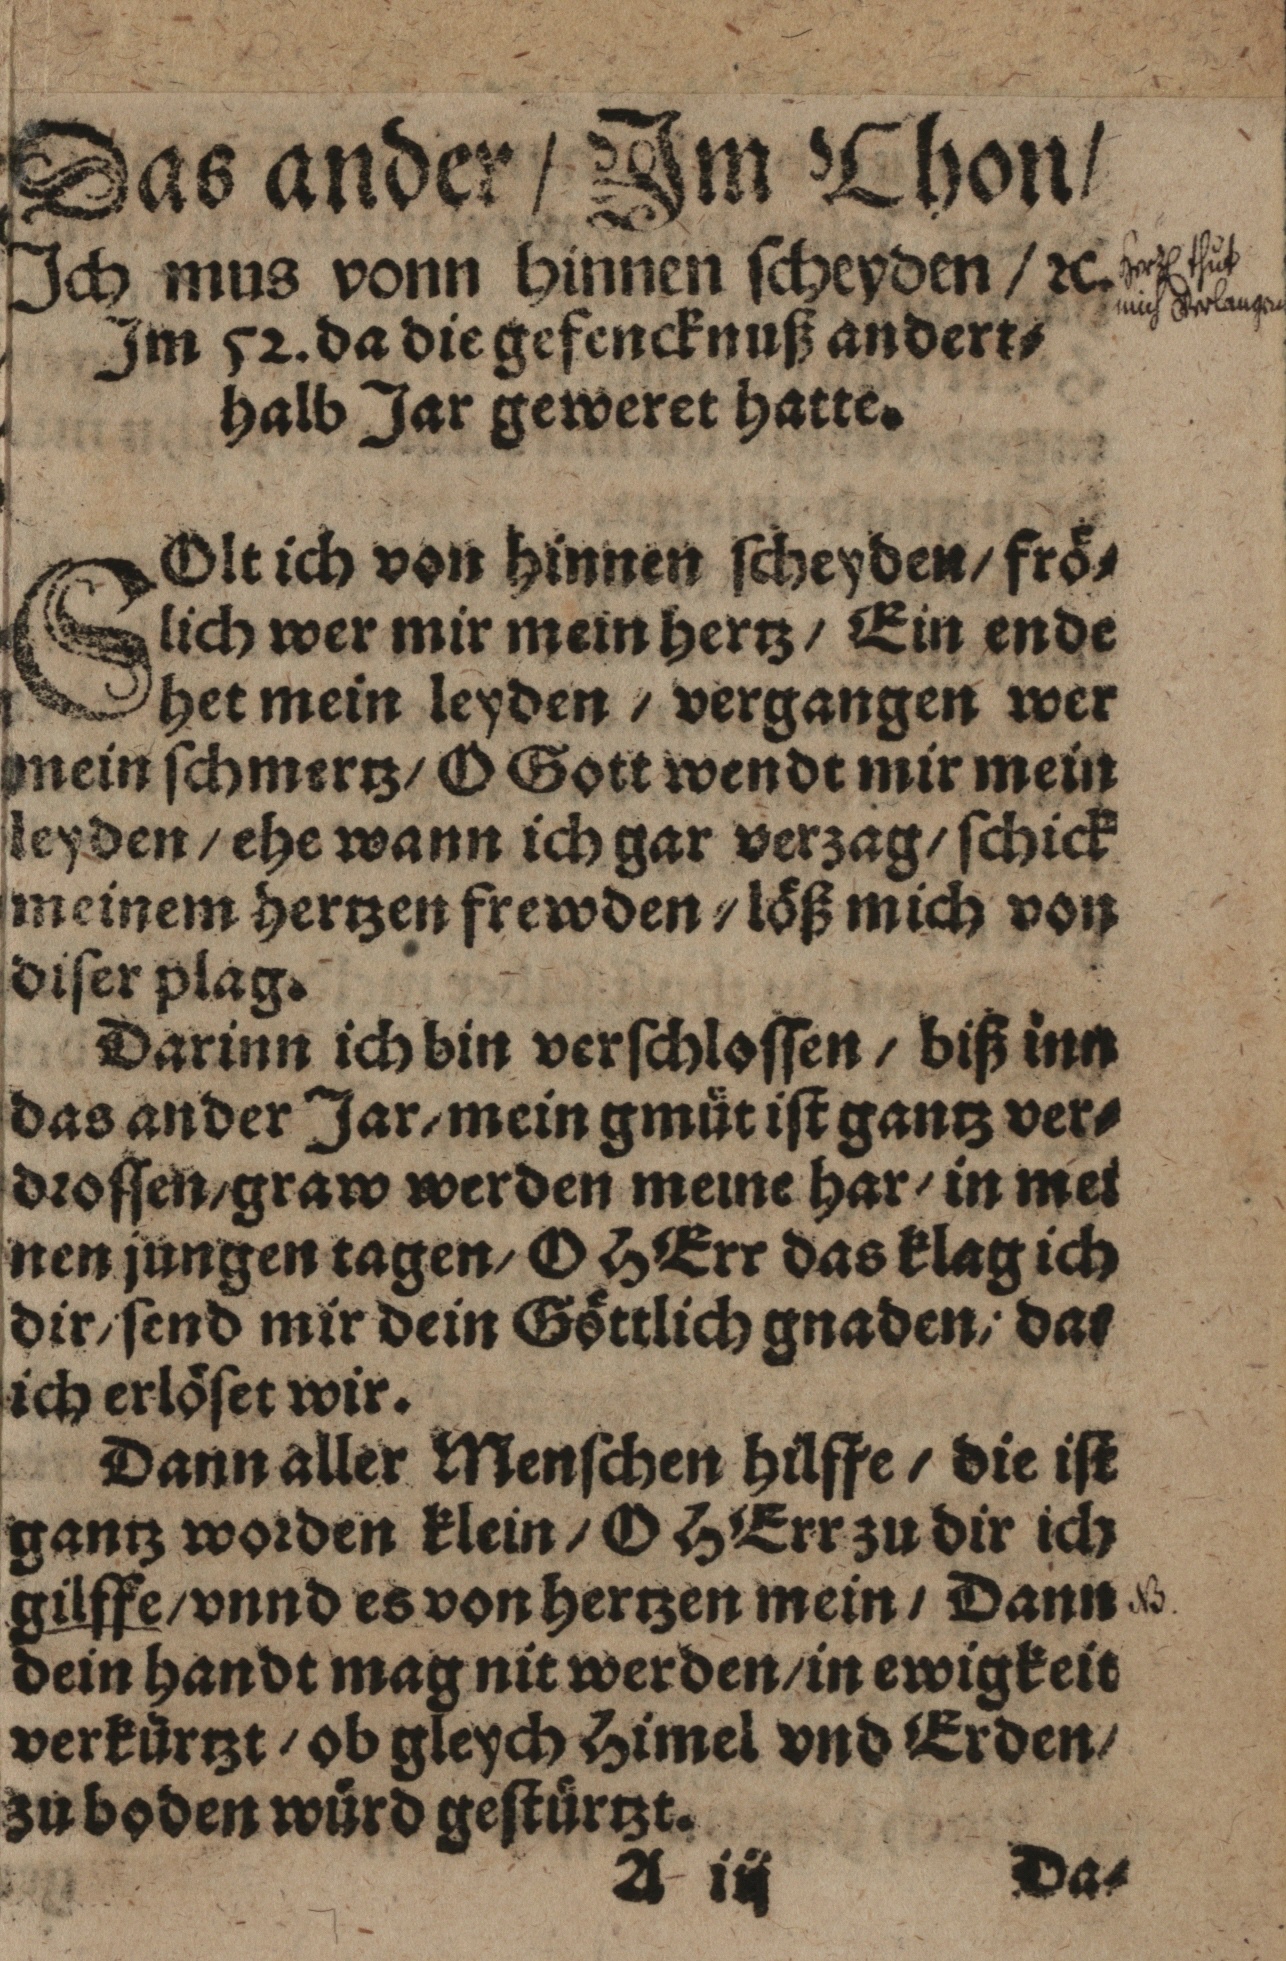 Das ander / Im Thon /
Ich mus vonn hinnen scheyden / ꝛc.
Hertzl thut
mich Verlangen
Im 52. da die gefencknuß andert⸗
halb Jar geweret hatte.
SOlt ich von hinnen scheyden / frö⸗
lich wer mir mein hertz / Ein ende
het mein leyden / vergangen wer
mein schmertz / O Gott wendt mir mein
leyden / ehe wann ich gar verzag / schick
meinem hertzen frewden / löß mich von
diser plag.
Darinn ich bin verschlossen / biß inn
das ander Jar / mein gmüt ist gantz ver⸗
drossen / graw werden meine har / in mei
nen jungen tagen / O HErr das klag ich
dir / send mir dein Göttlich gnaden / das
ich erlöset wir.
Dann aller Menschen hilffe / die ist
gantz worden klein / O HErr zu dir ich
gilffe / vnnd es von hertzen mein / Dann
NB.
dein handt mag nit werden / in ewigkeit
verkürtzt / ob gleych Himel vnd Erden /
zu boden würd gestürtzt.
A iij Da⸗